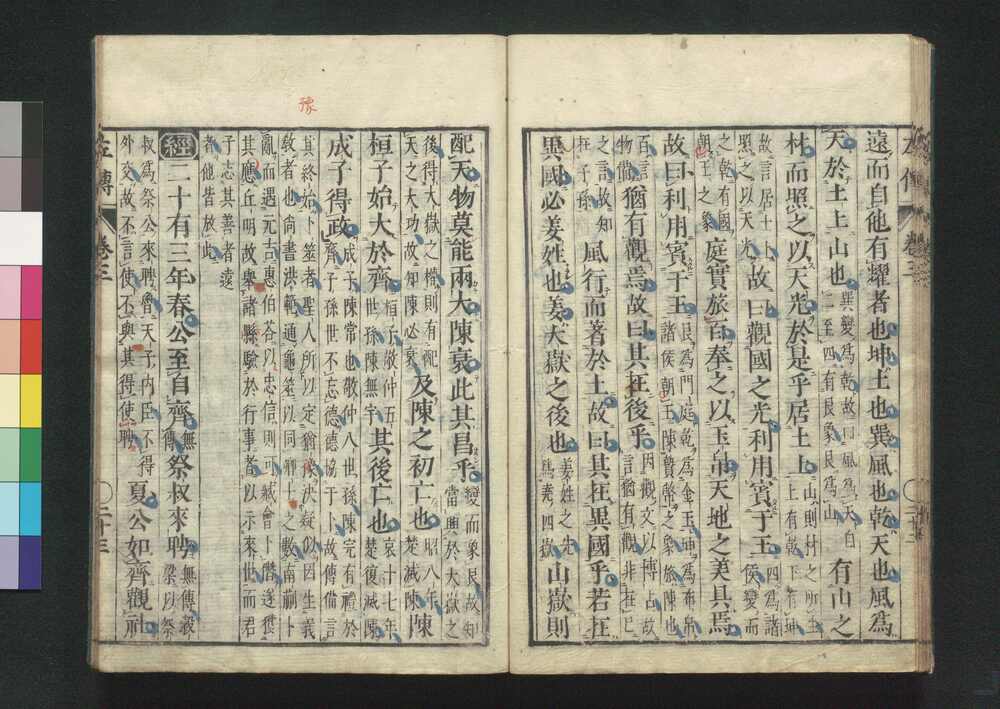 遠而自他有耀者也坤土也巽風也乾天也風爲
天於土上山也
巽變爲乾故曰風爲天自
二至四有艮象艮爲山
有山之
材而照之以天光於是乎居土上
山則材之所生
上有乾下有坤
故言居土上
照之以天光
故曰觀國之光利用賓于王
四爲諸
侯變而
之乾有國
朝王之象
庭實旅百奉之以玉帛天地之美具焉
故曰利用賓于王
艮爲門庭乾爲金玉坤爲布帛
諸侯朝王陳贄幣之象旅陳也
百言
物備
猶有觀焉故曰其在後乎
因觀文以博占故
言猶有觀非在己
之言故知
在子孫
風行而著於土故曰其在異國乎若在
異國必姜姓也姜大嶽之後也
姜姓之先
爲堯四嶽
山嶽則
豫
配天物莫能兩大陳衰此其昌乎
變而象艮故知
當興於大嶽之
後得大嶽之權則有配
天之大功故知陳必衰
及陳之初亡也
昭八年
楚滅陳
陳
桓子始大於齊
桓子敬仲五
世孫陳無宇
其後亡也
哀十七年
楚復滅陳
成子得政
成子陳常也敬仲八世孫陳完有禮於
齊子孫世不忘德德協于卜故傳備言
其終始卜筮者聖人所以定猶豫決疑似因生義
教者也尚書洪範通龜筮以同卿士之數南蒯卜
亂而遇元吉惠伯荅以忠信則可臧會卜僭遂獲
其應丘明故舉諸縣驗於行事者以示來世而君
子志其善者遠
者他皆放此
經二十有三年春公至自齊
無
傳
祭叔來聘
無傳穀
梁以祭
叔爲祭公來聘魯天子內臣不得
外交故不言使不與其得使聘
夏公如齊觀社
左傳
卷三
二十三